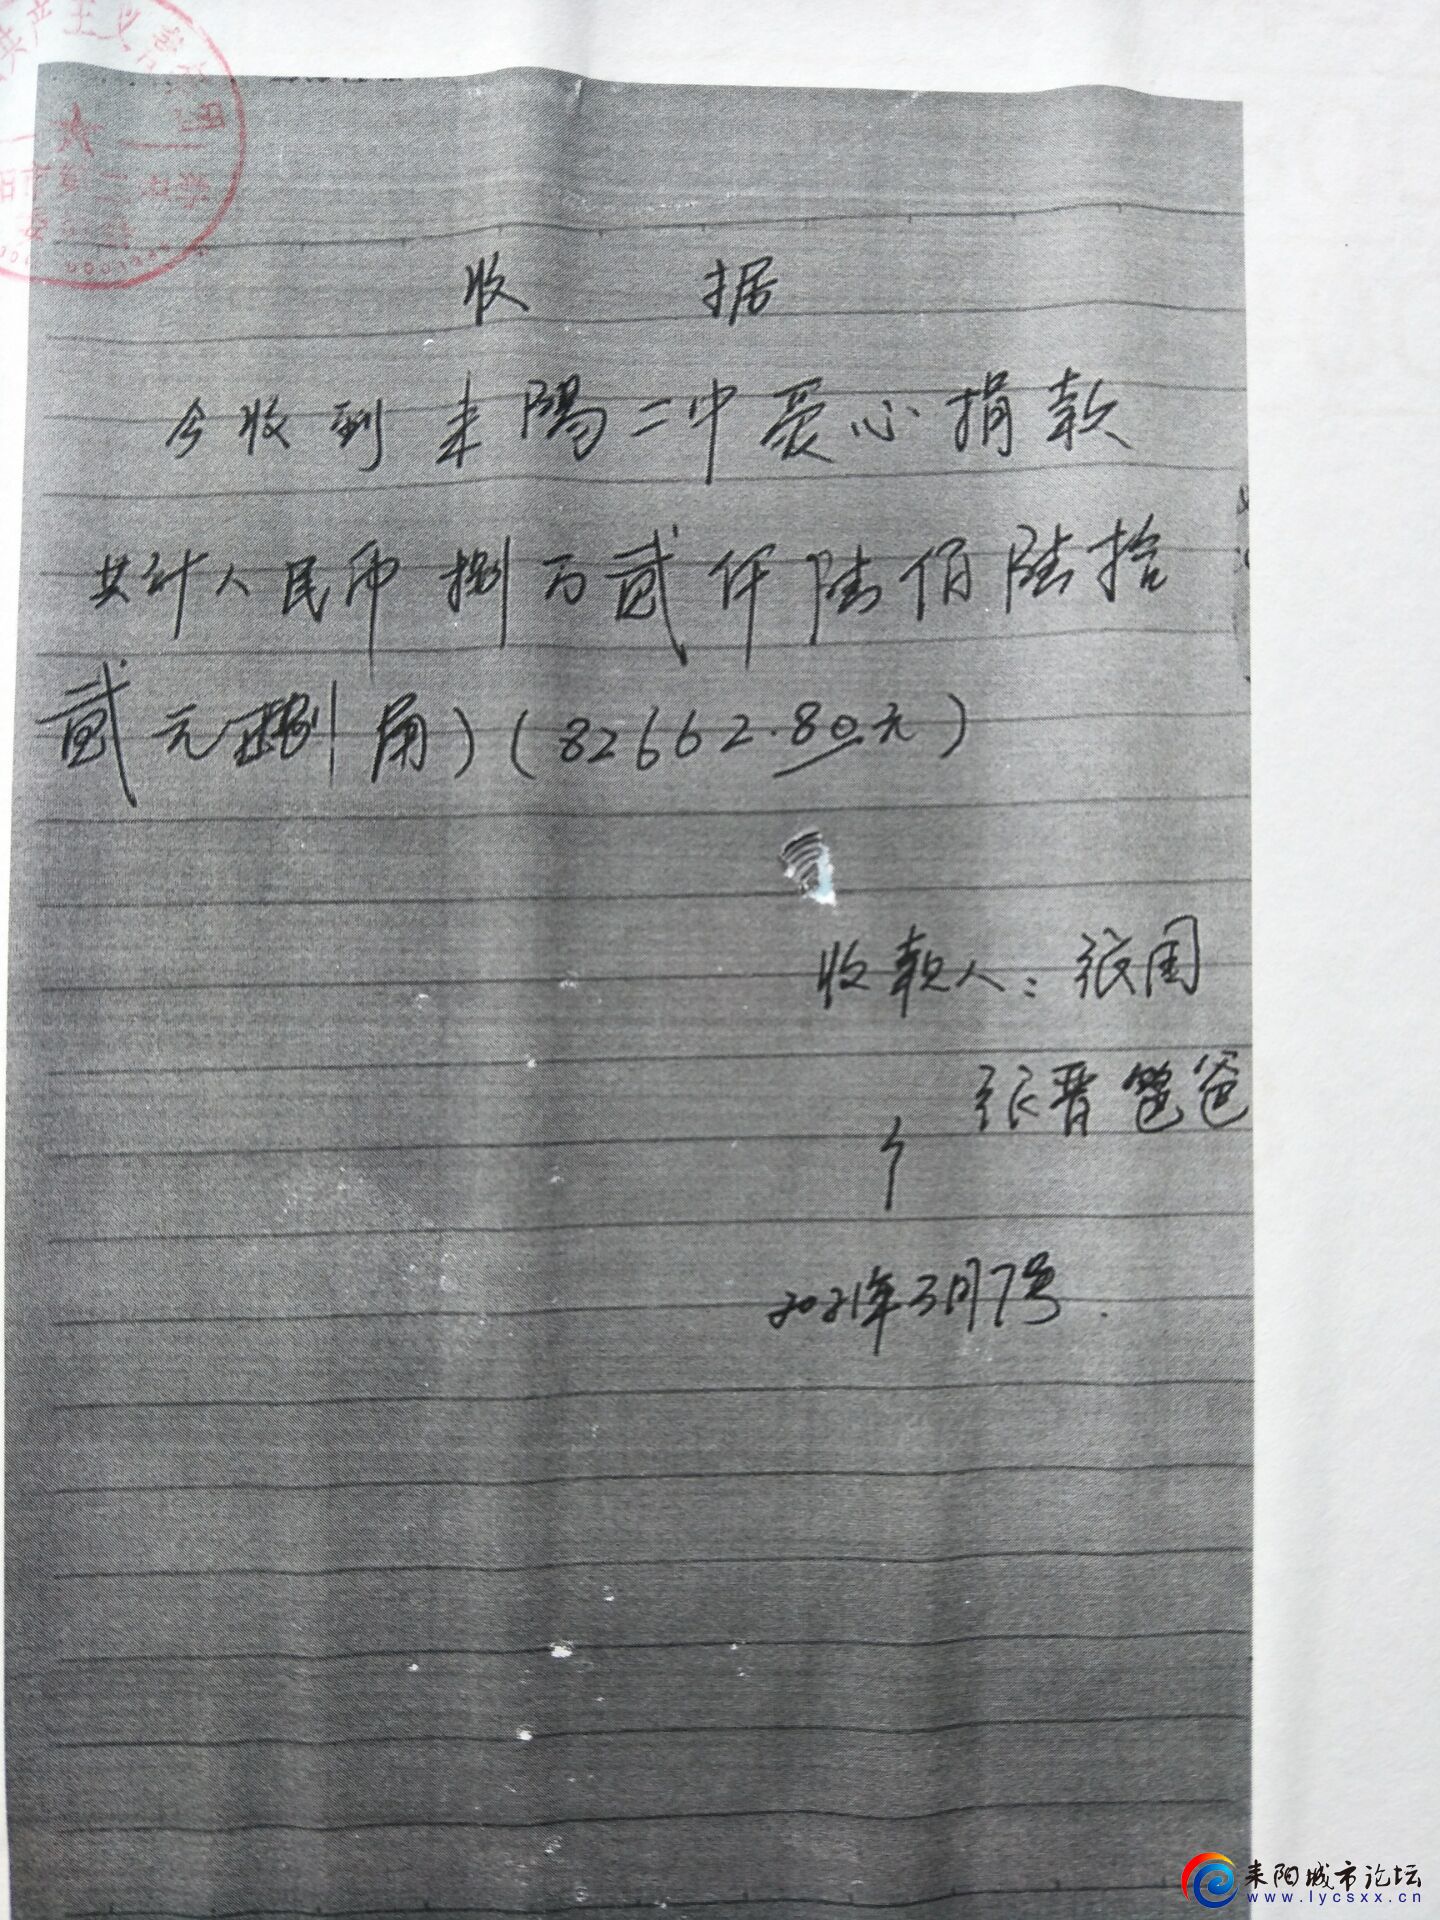 共产主义青年团
阳市第二中学
收 据
今收到耒陽二中爱心捐款
共计人民币捌万贰仟陆佰陆拾
贰元捌角)(82662.80元)
收款人:张国
张晋爸爸
2021年3月7号.
耒阳城市论坛
www.lycsxx.cn